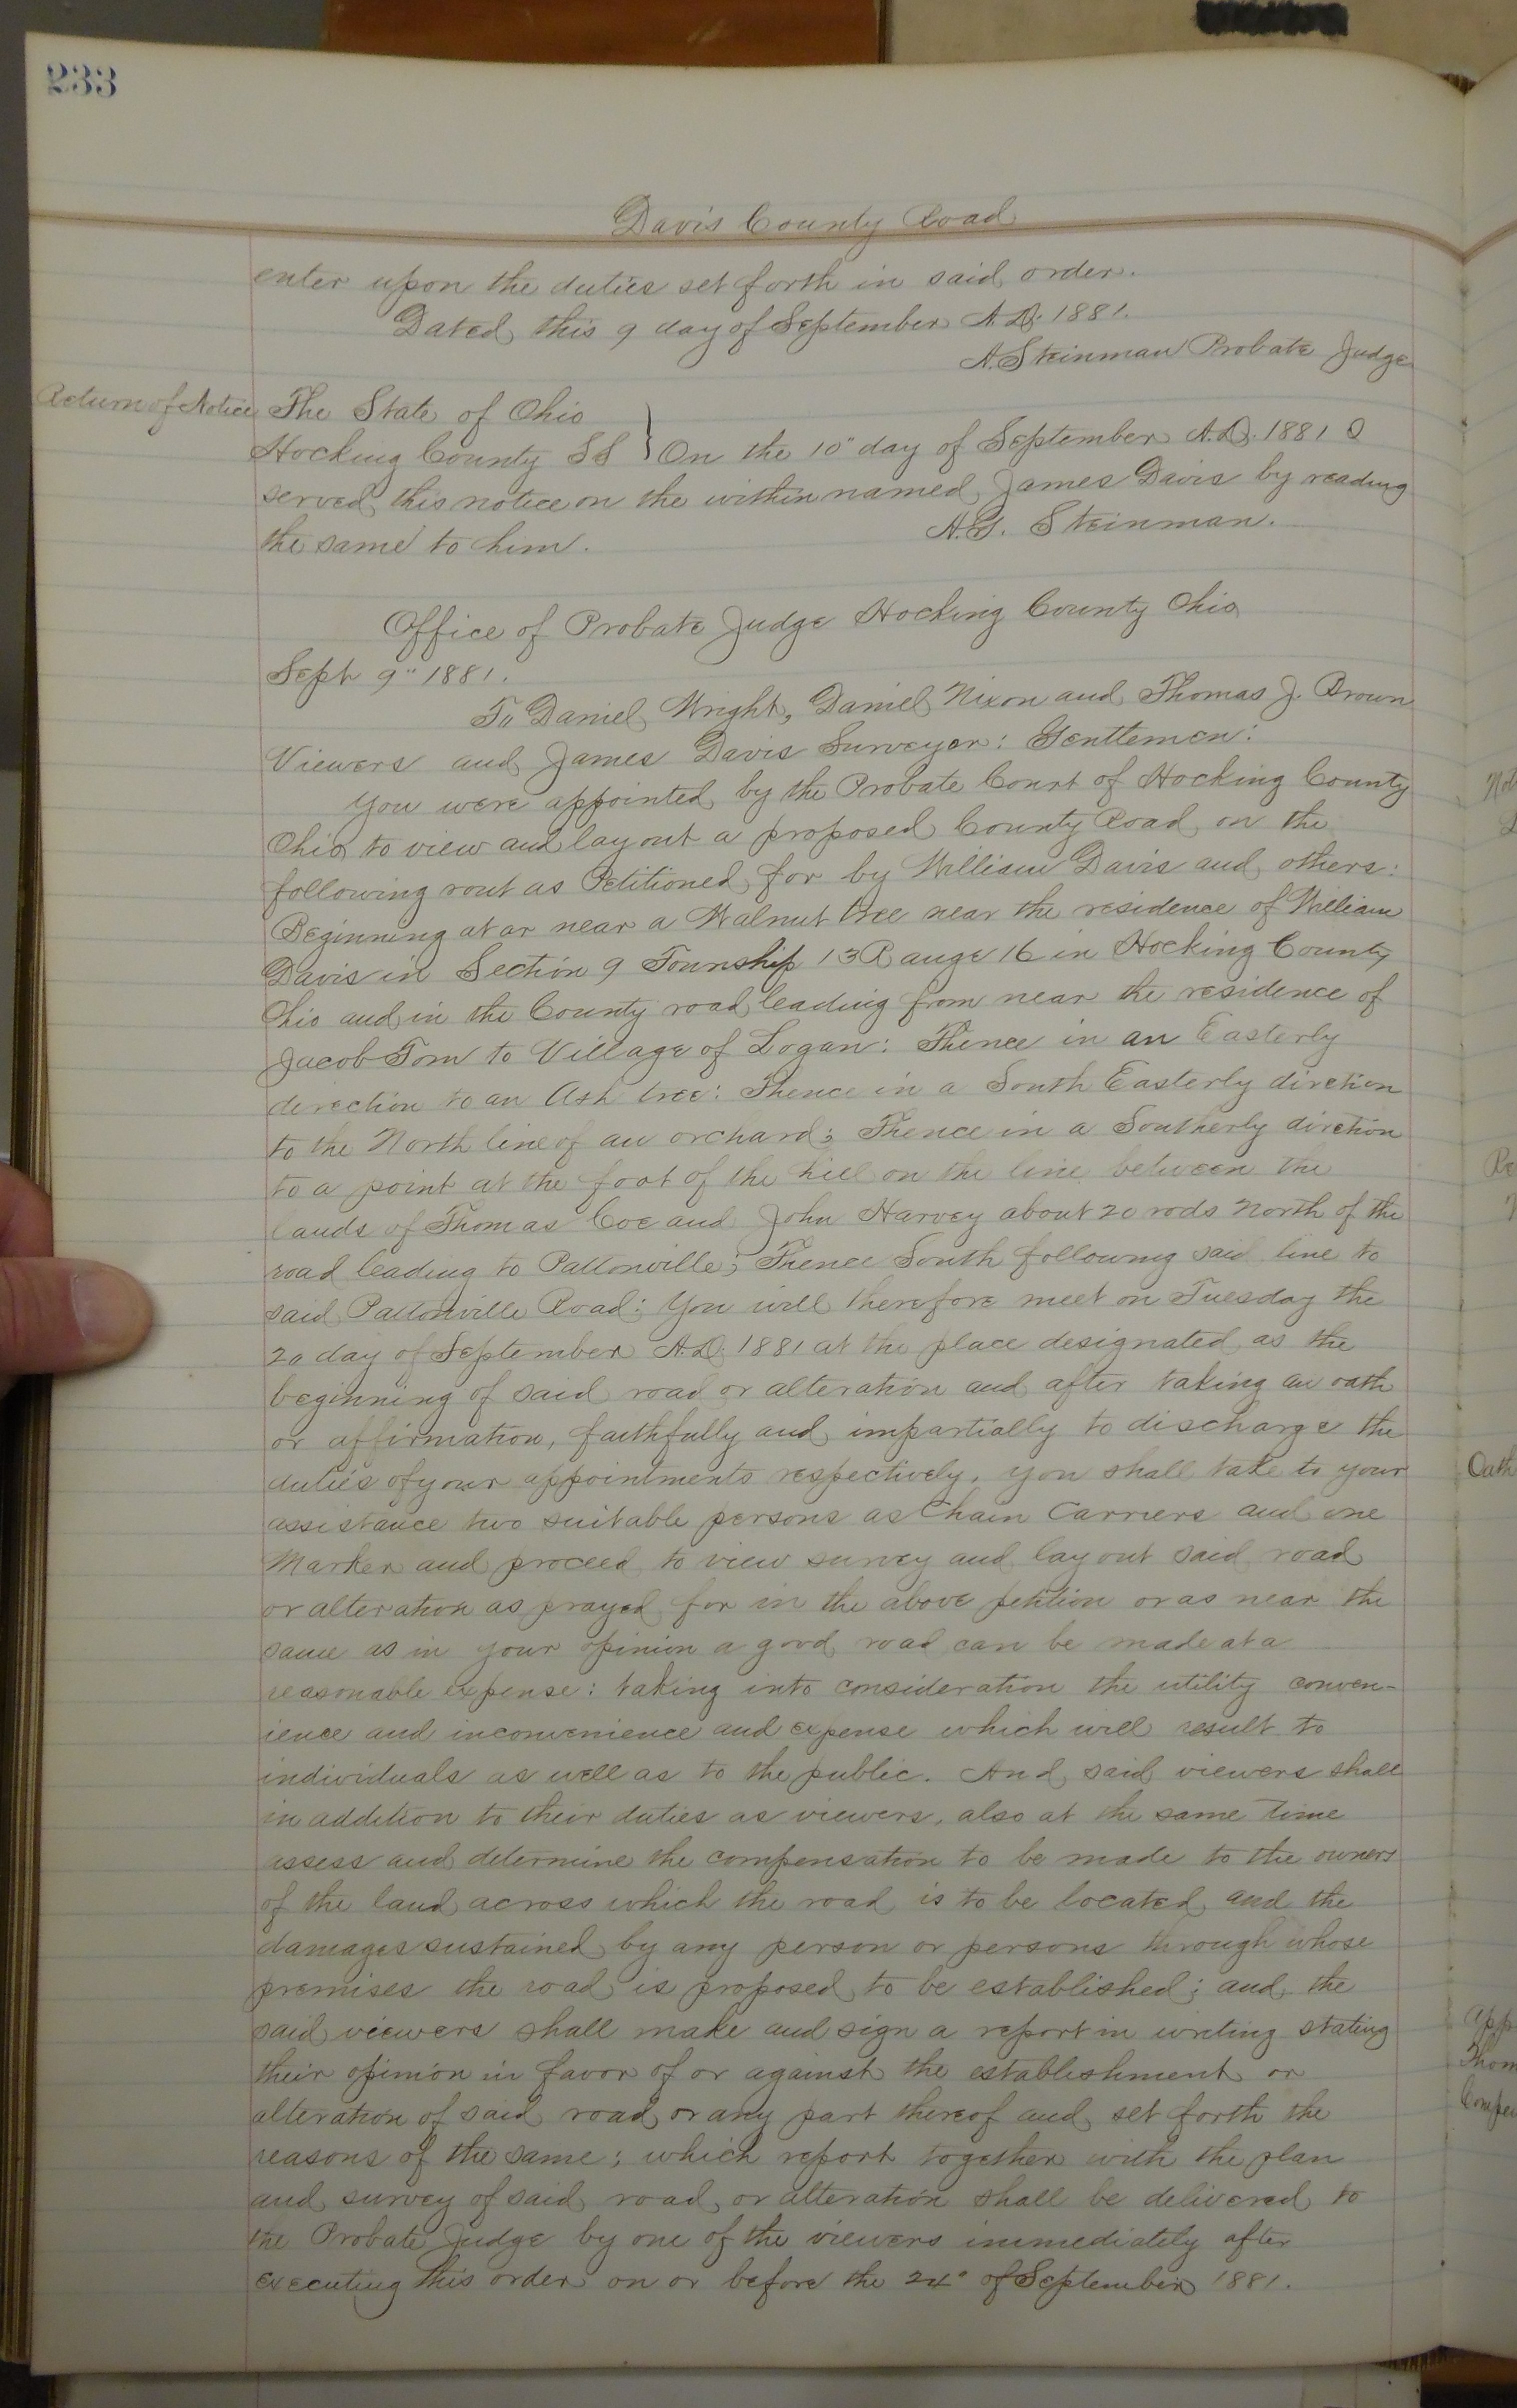 233
Davis County Road
enter upon the duties set forth in said order.
Dated this 9 day of September A.D. 1881.
A. Steinman Probate Judge
Return of Notice
The State of Ohio
Hocking County SS } On the 10" day of September A.D. 1881 I
served this notice on the within named James Davis by reading
the same to him.
A.G. Steinman.
Office of Probate Judge Hocking County Ohio
Sept 9" 1881.
To Daniel Wright, Daniel Nixon and Thomas J. Brown
Viewers and James Davis Surveyor: Gentlemen:
You were appointed by the Probate Court of Hocking County
Ohio to view and lay out a proposed County Road on the
following rout as Petitioned for by William Davis and others:
Beginning at or near a Walnut tree near the residence of William
Davis in Section 9 Township 13 Range 16 in Hocking County
Ohio and in the County road leading from near the residence of
Jacob Tom to Village of Logan: Thence in an Easterly
direction to an Ash tree: Thence in a South Easterly dirction
to the North line of an orchard; Thence in a Southerly dirction
to a point at the foot of the hill on the line between the
lands of Thomas Coe and John Harvey about 20 rods North of the
road leading to Pattonville; Thence South following said line to
said Pattonville Road: You will therefore meet on Tuesday the
20 day of September A.D. 1881 at the place designated as the
beginning of said road or alteration and after taking an oath
or affirmation, faithfully and impartially to discharge the
duties of your appointments respectively, you shall take to your
assistance two suitable persons as Chain Carriers and one
Marker and proceed to view survey and lay out said road
or alteration as prayed for in the above petition or as near the
same as in your opinion a good road can be made at a
reasonable expense: taking into consideration the utility conven-
ience and inconvenience and expense which will result to
individuals as well as to the public. And said viewers shall
in addition to their duties as viewers, also at the same time
assess and determine the compensation to be made to the owners
of the land across which the road is to be located and the
damages sustained by any person or persons through whose
premises the road is proposed to be established; and the
said viewers shall make and sign a report in writing stating
their opinion in favor of or against the establishment or
alteration of said road or any part thereof and set forth the
reasons of the same; which report together with the plan
and survey of said road or alteration shall be delivered to
the Probate Judge by one of the viewers immediately after
executing this order on or before the 24" of September 1881.
Oath